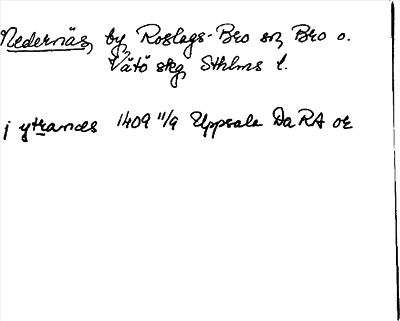 Nedernäs, by, Roslags-Bro sn, Bro o.
Vätö skg, Sthlms l.
j ytranæs 1409 11/9 Uppsala DaRA or